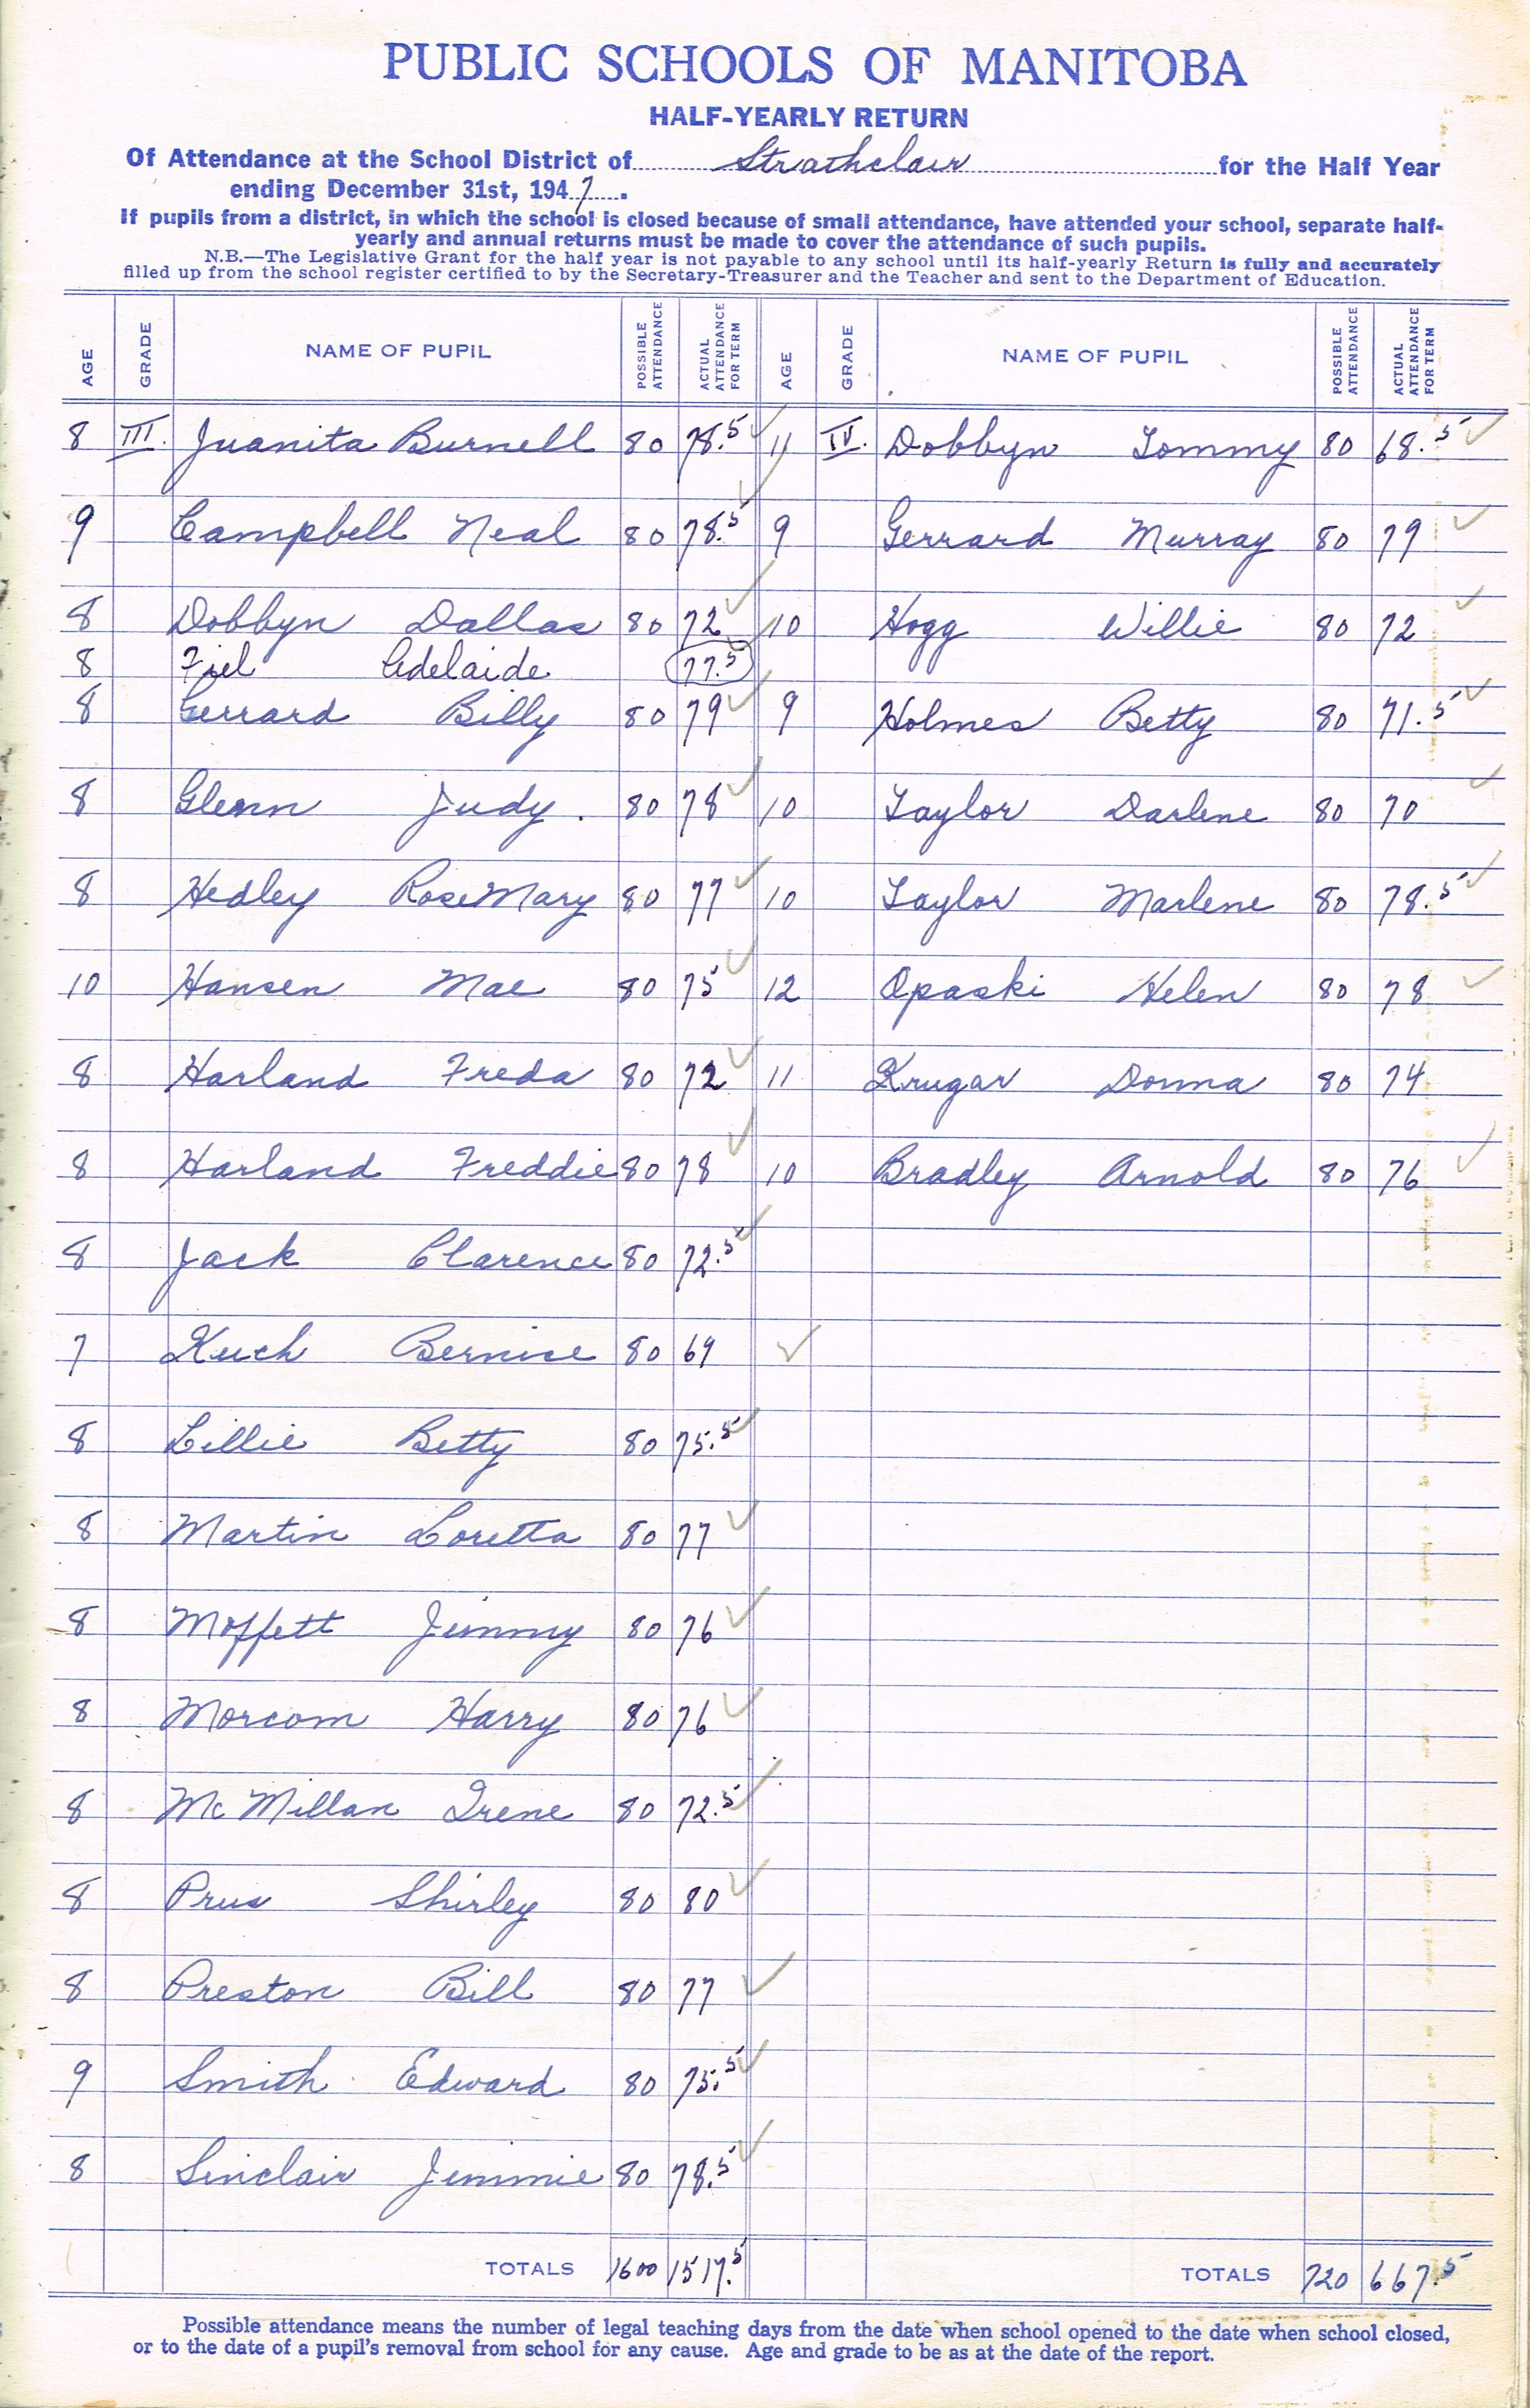 PUBLIC SCHOOLS OF MANITOBA
HALF-YEARLY RETURN
Of Attendance at the School District of Strathclair for the Half Year
ending December 31st, 1947.
If pupils from a district, in which the school is closed because of small attendance, have attended your school, separate half-
yearly and annual returns must be made to cover the attendance of such pupils.
N.B.—The Legislative Grant for the half year is not payable to any school until its half-yearly Return is fully and accurately
filled up from the school register certified to by the Secretary-Treasurer and the Teacher and sent to the Department of Education.
AGE GRADE NAME OF PUPIL POSSIBLE ATTENDANCE ACTUAL ATTENDANCE FOR TERM AGE GRADE NAME OF PUPIL POSSIBLE ATTENDANCE ACTUAL ATTENDANCE FOR TERM
8 III. Juanita Burnell 80 78.5 ✓ 11 IV. Dobbyn Tommy 80 68.5 ✓
9 Campbell Neal 80 78.5 ✓ 9 Gerrard Murray 80 79 ✓
8 Dobbyn Dallas 80 72 ✓ 10 Hogg Willie 80 72 ✓
8 Fiel Adelaide 77.5
8 Gerrard Billy 80 79 ✓ 9 Holmes Betty 80 71.5 ✓
8 Glenn Judy. 80 78 ✓ 10 Taylor Darlene 80 70 ✓
8 Hedley RoseMary 80 77 ✓ 10 Taylor Marlene 80 78.5 ✓
10 Hansen Mae 80 75 ✓ 12 Opaski Helen 80 78 ✓
8 Harland Freda 80 72 ✓ 11 Krugar Donna 80 74
8 Harland Freddie 80 78 ✓ 10 Bradley Arnold 80 76 ✓
8 Jack Clarence 80 72.5 ✓
7 Kuch Bernice 80 69 ✓
8 Lillie Betty 80 75.5 ✓
8 Martin Loretta 80 77 ✓
8 Moffett Jimmy 80 76 ✓
8 Morcom Harry 80 76 ✓
8 McMillan Irene 80 72.5 ✓
8 Prus Shirley 80 80 ✓
8 Preston Bill 80 77 ✓
9 Smith Edward 80 75.5 ✓
8 Sinclair Jimmie 80 78.5 ✓
TOTALS 1600 1517.5 TOTALS 720 667.5
Possible attendance means the number of legal teaching days from the date when school opened to the date when school closed,
or to the date of a pupil's removal from school for any cause. Age and grade to be as at the date of the report.